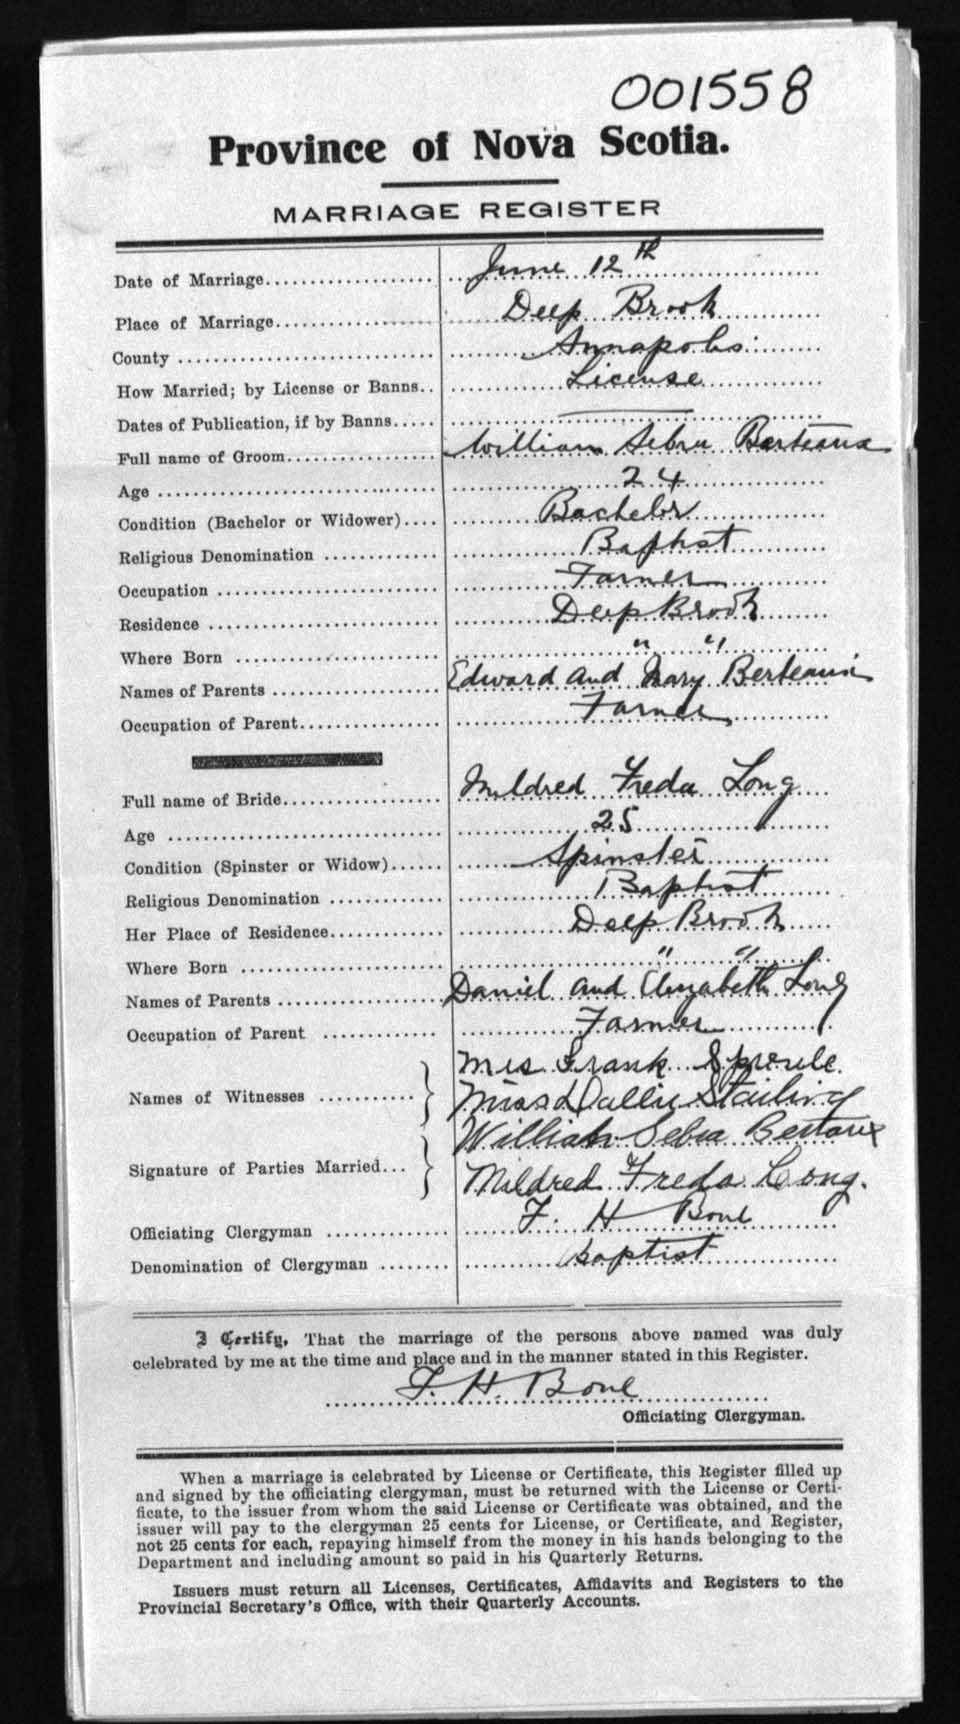 001558
Province of Nova Scotia.
MARRIAGE REGISTER
Date of Marriage.................... June 12th
Place of Marriage.................... Deep Brook
County .................... Annapolis
How Married; by License or Banns.. License
Dates of Publication, if by Banns..... —
Full name of Groom.................... William Sebra Berteaux
Age .................... 24
Condition (Bachelor or Widower).... Bachelor
Religious Denomination ............ Baptist
Occupation .................... Farmer
Residence .................... Deep Brook
Where Born .................... " "
Names of Parents .................... Edward and Mary Berteaux
Occupation of Parent.................... Farmer
Full name of Bride.................... Mildred Freda Long
Age .................... 25
Condition (Spinster or Widow)...... Spinster
Religious Denomination ............ Baptist
Her Place of Residence............. Deep Brook
Where Born .................... " "
Names of Parents .................... Daniel and Elizabeth Long
Occupation of Parent ............ Farmer
Mrs Frank Sproule.
Names of Witnesses ........... } Miss Dallie
William Sebra Bertaux
Signature of Parties Married... } Mildred Freda Long.
Officiating Clergyman ............. F. H Bone
Denomination of Clergyman ........ Baptist
I Certify, That the marriage of the persons above named was duly
celebrated by me at the time and place and in the manner stated in this Register.
F. H. Bone
Officiating Clergyman.
When a marriage is celebrated by License or Certificate, this Register filled up
and signed by the officiating clergyman, must be returned with the License or Certi-
ficate, to the issuer from whom the said License or Certificate was obtained, and the
issuer will pay to the clergyman 25 cents for License, or Certificate, and Register,
not 25 cents for each, repaying himself from the money in his hands belonging to the
Department and including amount so paid in his Quarterly Returns.
Issuers must return all Licenses, Certificates, Affidavits and Registers to the
Provincial Secretary's Office, with their Quarterly Accounts.